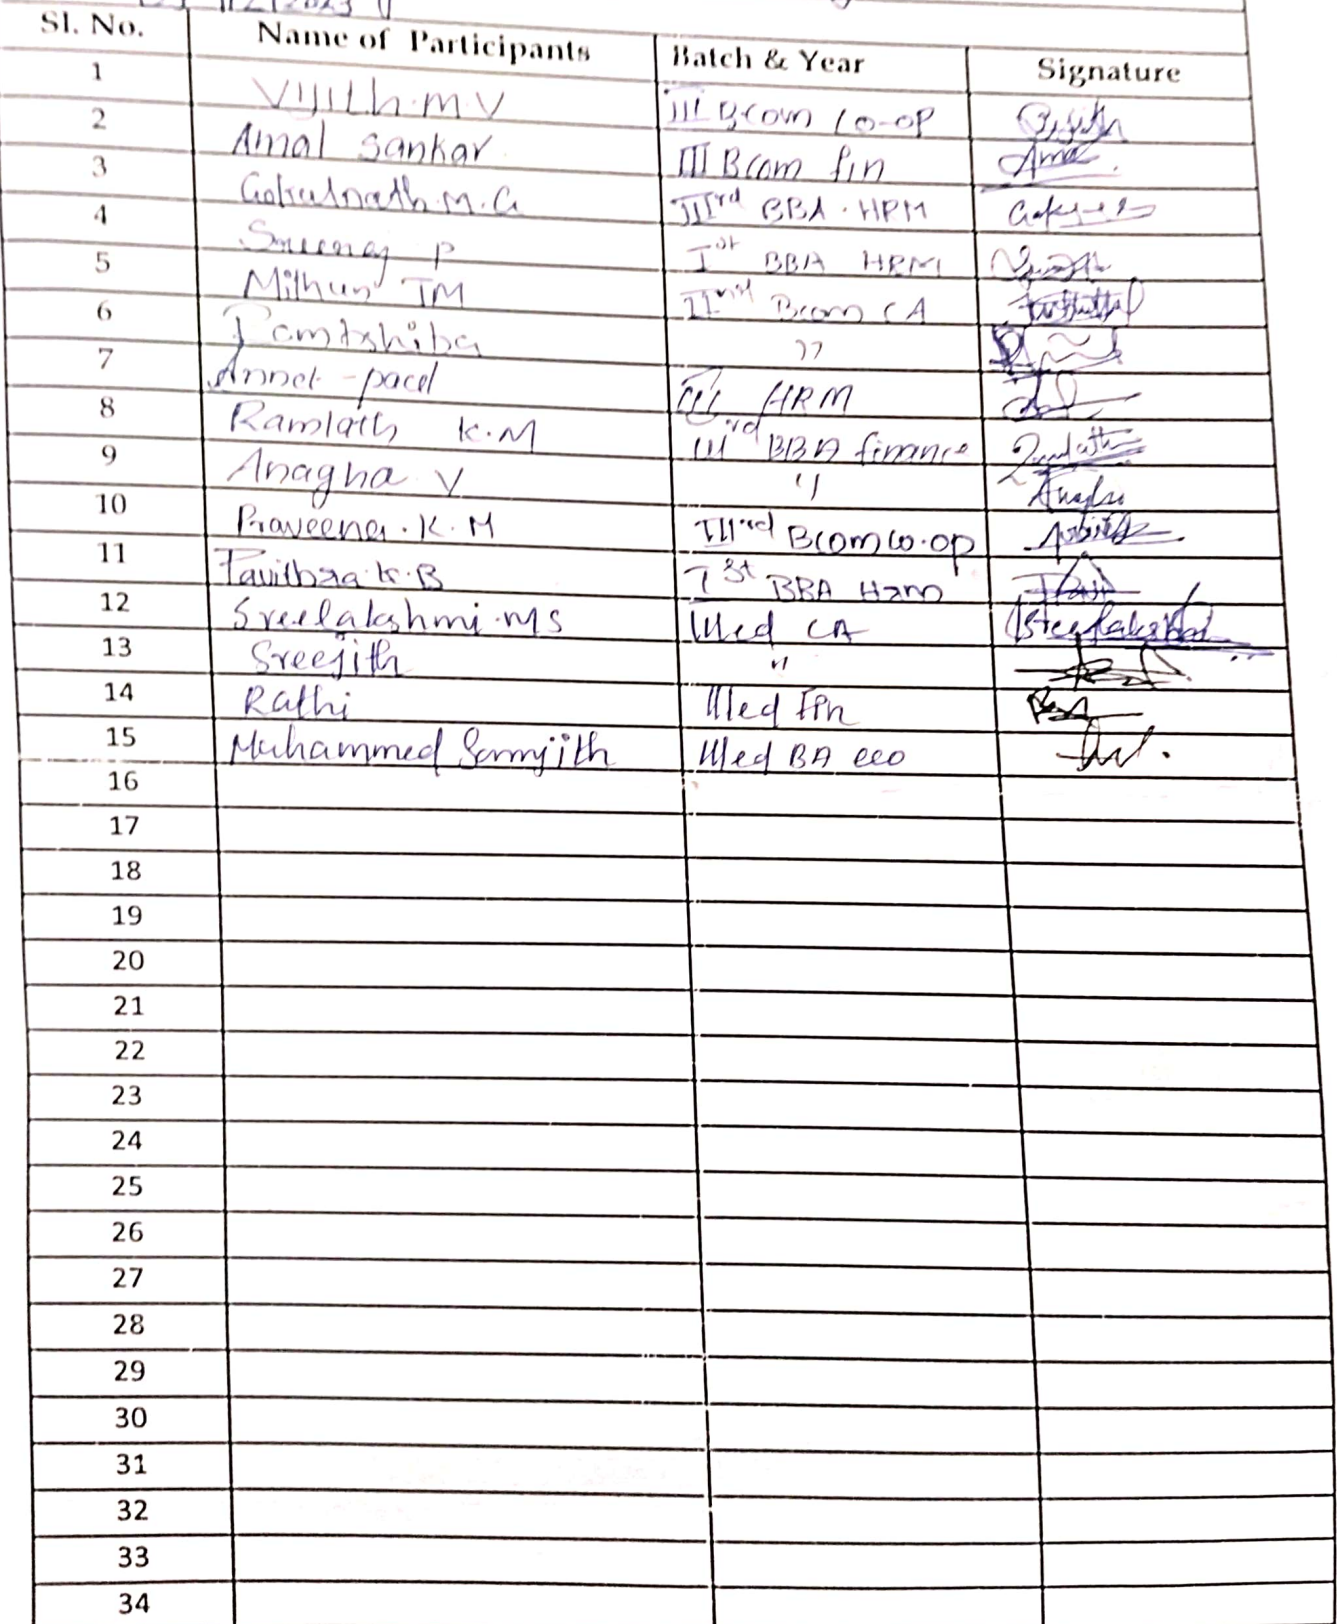 Sl. No. Name of Participants Batch & Year Signature
1 Vijith.m.V III Bcom Co-op
2 Amal Sankar III Bcom fin
3 Gokulnath.M.G IIIrd BBA.HPM
4 P Ist BBA HRM
5 Mithun TM IInd Bcom CA
6 ,,
7 Annet-paul III HRM
8 Ramlath K.M IIIrd BBA finance
9 Anagha V "
10 Praveena.K.M IIIrd Bcom co.op
11 Pavithra.K.B Ist BBA Hrm
12 Sreelakshmi.MS CA Sreelakshmi
13 Sreejith "
14 Rathi Fin
15 Muhammed Samjith BA eco
16
17
18
19
20
21
22
23
24
25
26
27
28
29
30
31
32
33
34